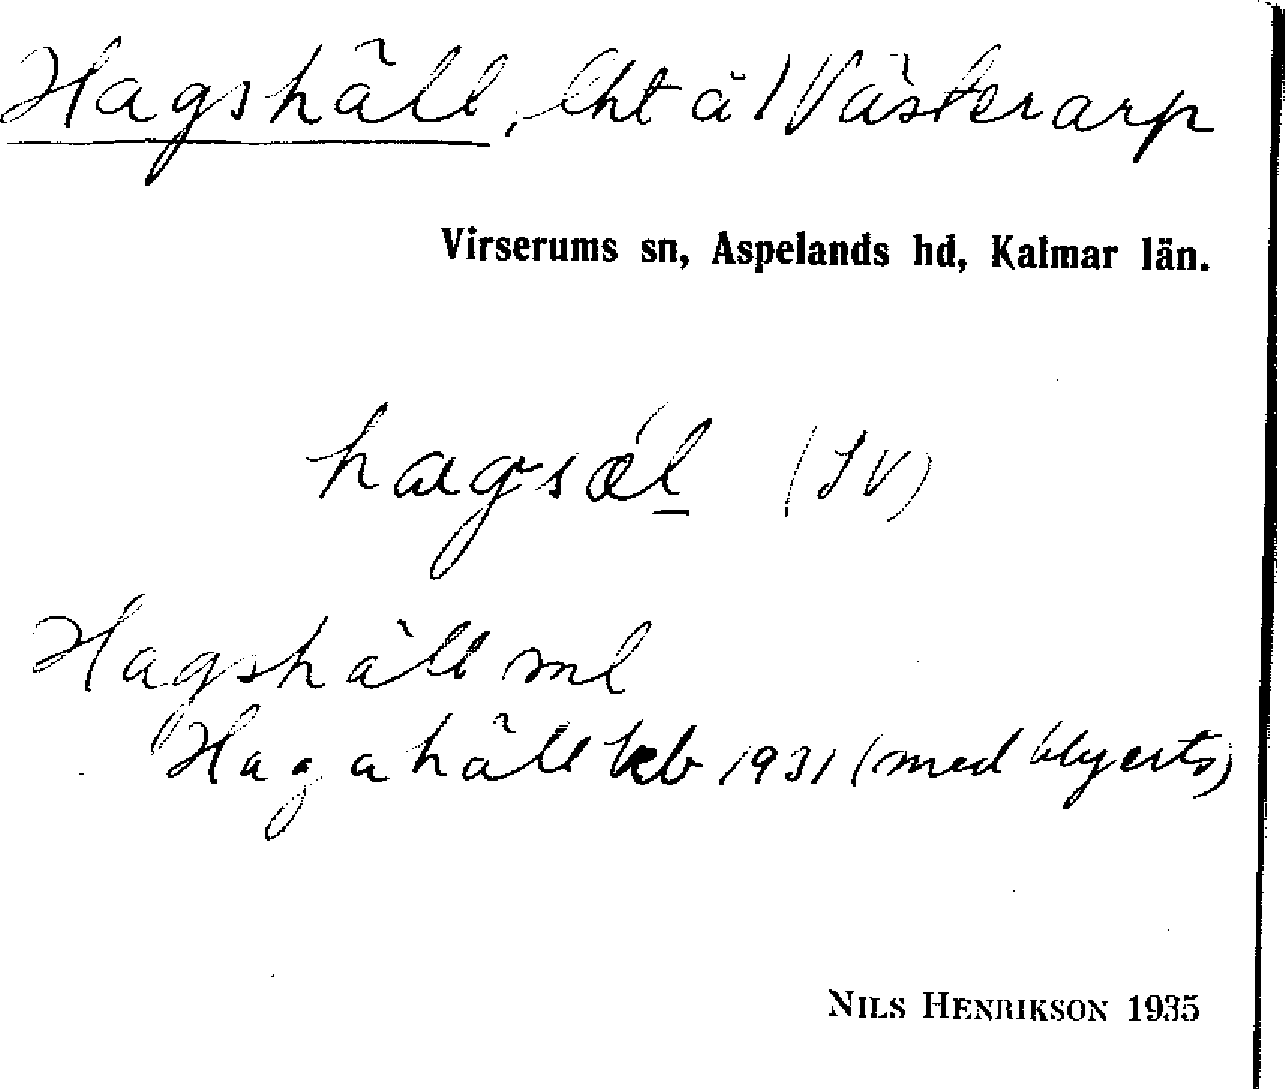 Hagshäll, lht å 1 Västerarp
Virserums sn, Aspelands hd, Kalmar län.
hagsǽl (SV)
Hagshäll ml
Hagahäll kb 1931 (med blyerts)
NILS HENRIKSON 1935